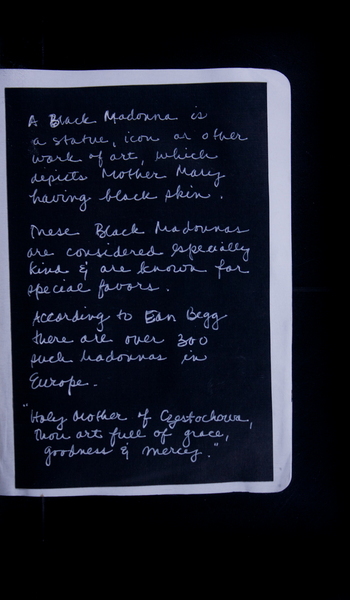 A Black Madonna is
a statue, icon or other
work of art, which
depicts Mother Mary
having black skin.
These Black Madonnas
are considered especially
kind & are known for
special favors.
According to Ean Begg
there are over 300
such Madonnas in
Europe.
"Holy Mother of Częstochowa,
Thou art full of grace,
goodness & mercy."